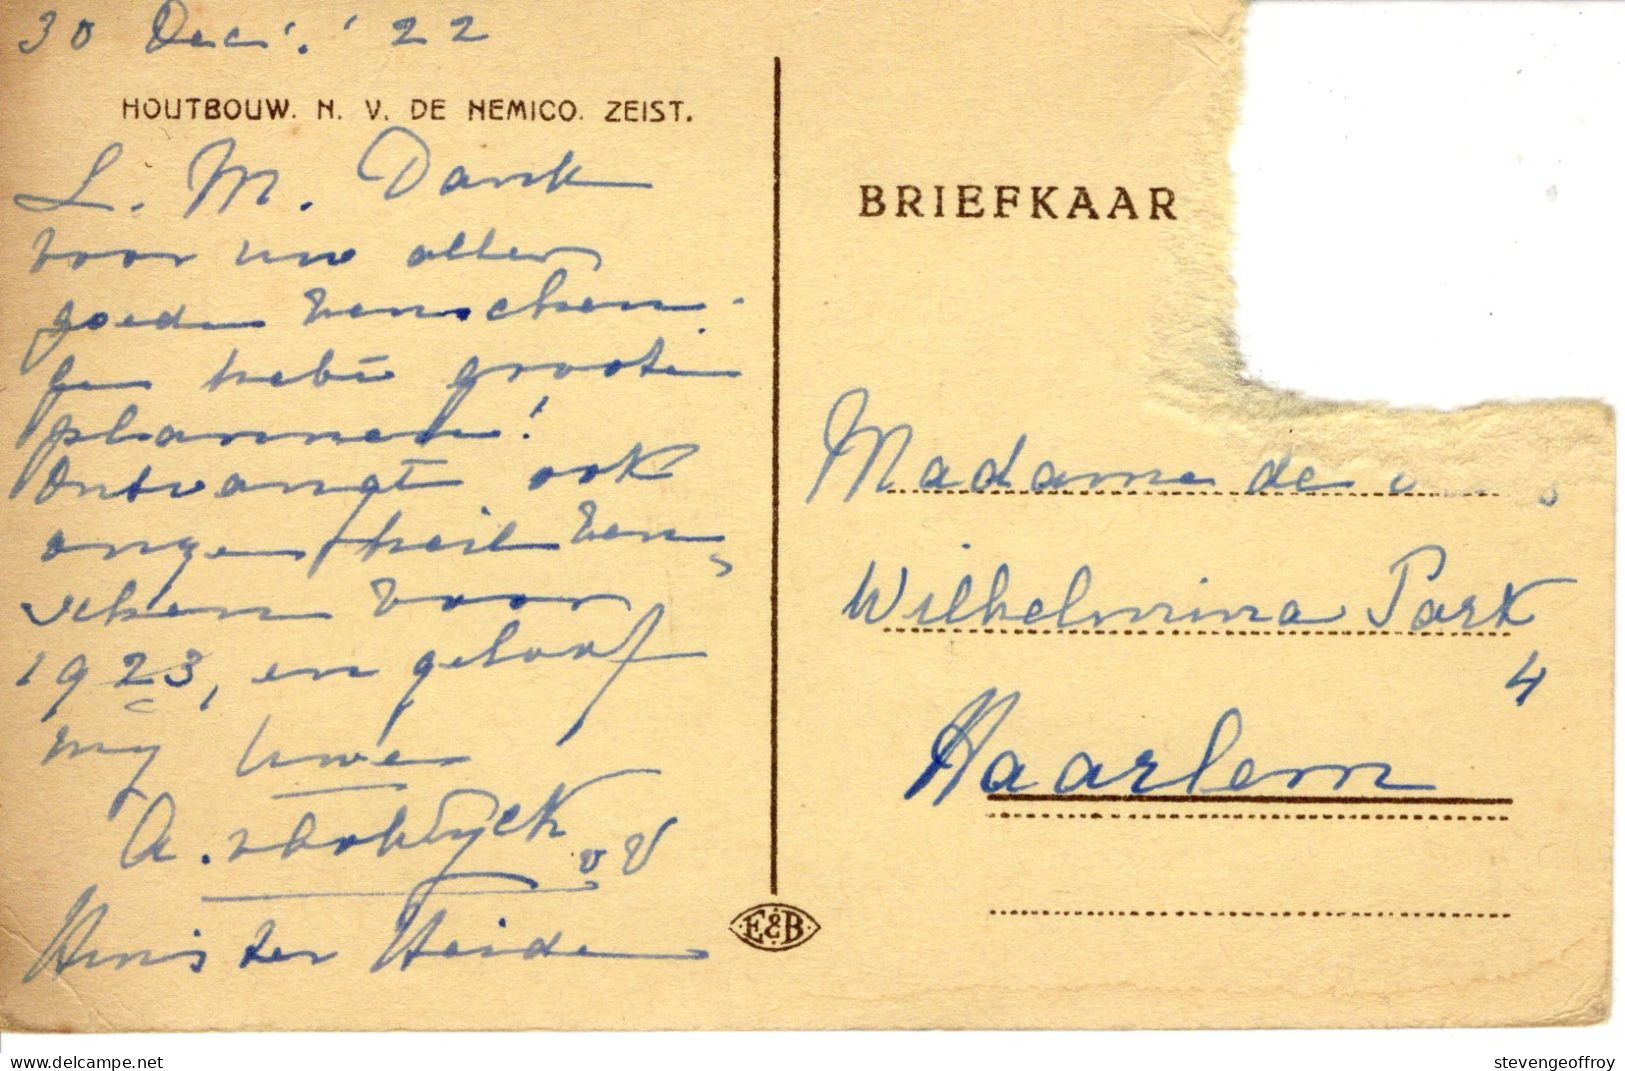 30 Dec. '22
HOUTBOUW. N. V. DE NEMICO. ZEIST.
L. M. Dank
voor uw aller
goede wenschen.
Gu hebt groote
plannen!
Ontvangt ook
onze heil wen
schen voor
1923, en geloof
my Uwe
A.
Huis ter Heide
BRIEFKAAR
Madame de
Wilhelmina Park
4
Haarlem
E&B
delcampe.net
stevengeoffroy